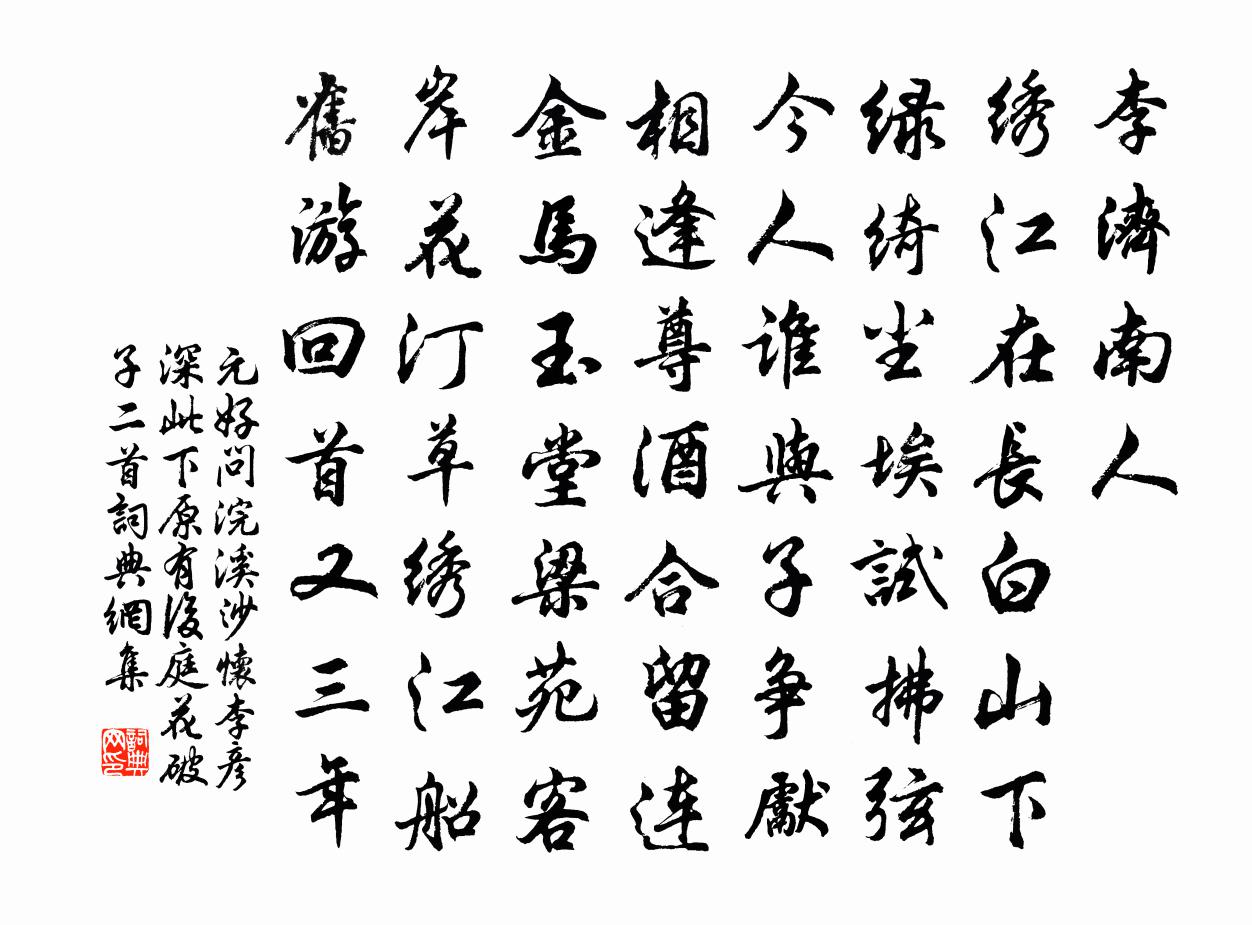 李濟南人
绣江在長白山下
緑綺尘埃試拂弦
今人誰與子争獻
相逢尊酒合留连
金馬玉堂梁苑客
岸花汀草绣江船
舊游回首又三年
元好問浣溪沙懷李彦
深此下原有後庭花破
子二首詞典網集
詞典
网印